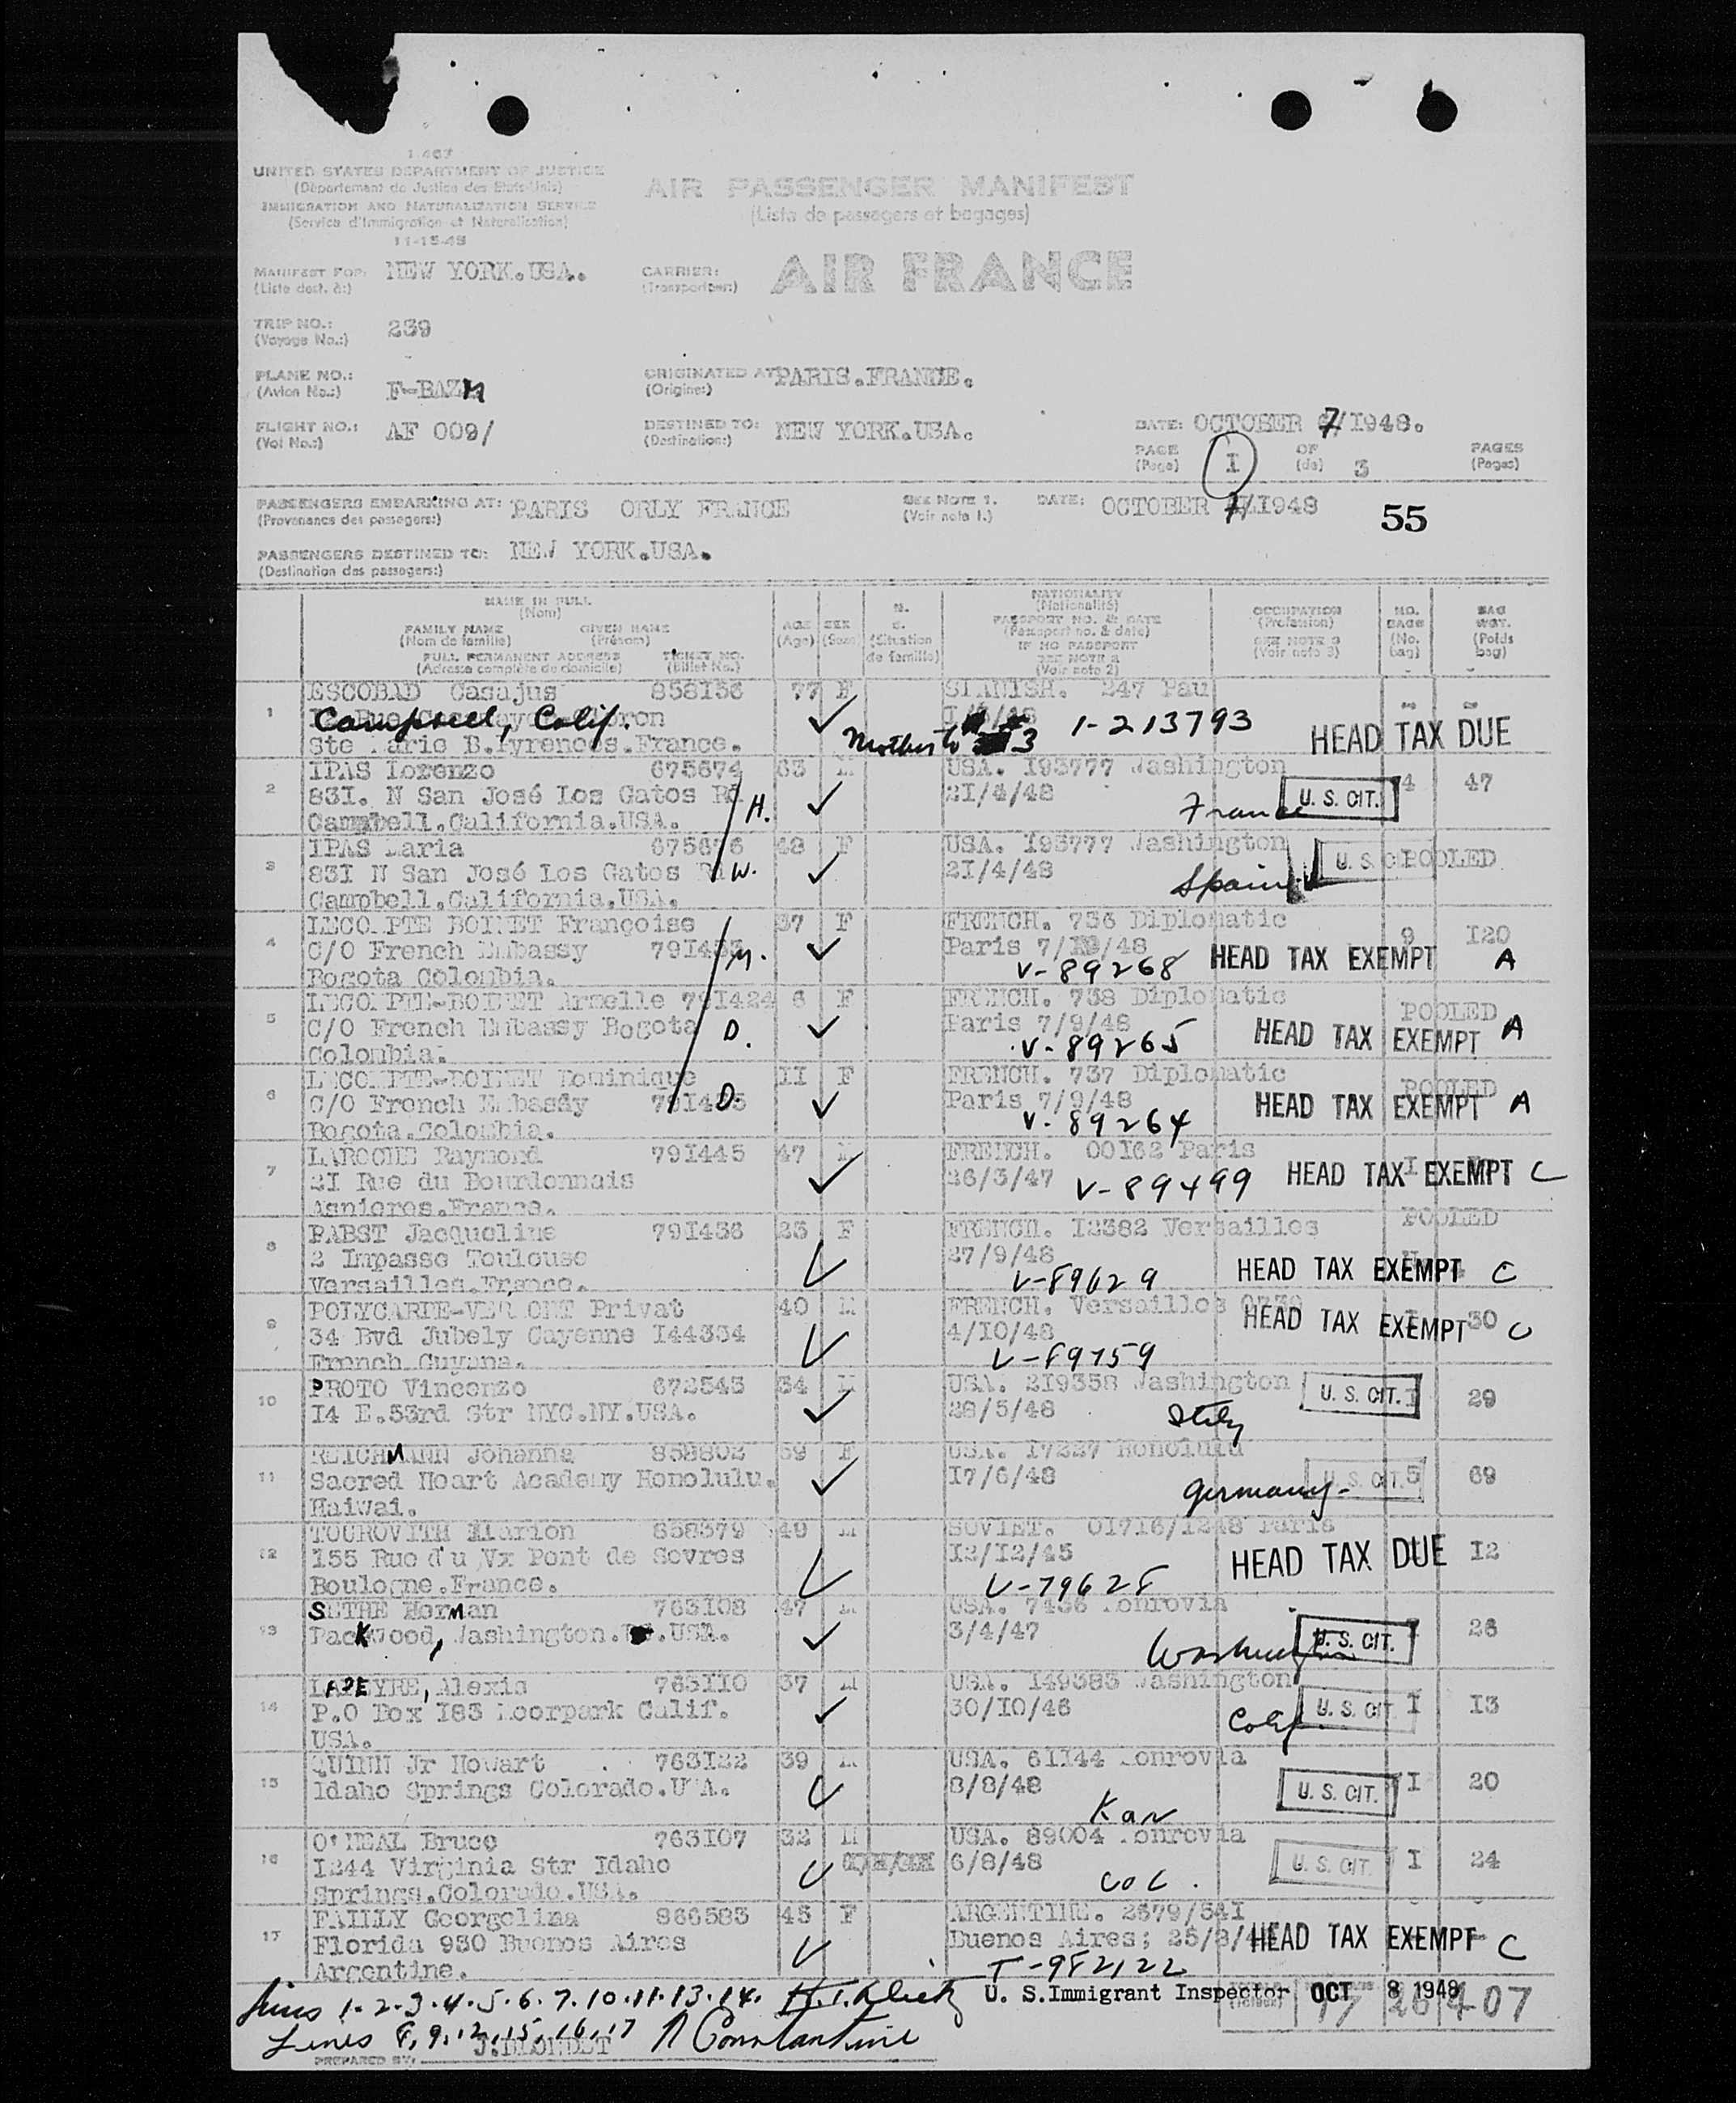 1-467
UNITED STATES DEPARTMENT OF JUSTICE
(Département de Justice des Etats-Unis)
IMMIGRATION AND NATURALIZATION SERVICE
(Service d'Immigration et Naturalisation)
11-15-48
AIR PASSENGER MANIFEST
(Liste de passagers et bagages)
MANIFEST FOR: NEW YORK.USA.
(Liste dest. à:)
CARRIER: AIR FRANCE
(Transporteur:)
TRIP NO.: 239
(Voyage No.:)
PLANE NO.: F-BAZ
(Avion No.:)
ORIGINATED AT PARIS.FRANCE.
(Origine:)
FLIGHT NO.: AF 009/
(Vol No.:)
DESTINED TO: NEW YORK.USA.
(Destination:)
DATE: OCTOBER 7/1948.
PAGE I OF 3 PAGES
(Page) (de) (Pages)
PASSENGERS EMBARKING AT: PARIS ORLY FRANCE
(Provenance des passagers:)
SEE NOTE 1. DATE: OCTOBER 7/1948
(Voir note 1.)
55
PASSENGERS DESTINED TO: NEW YORK.USA.
(Destination des passagers:)
NAME IN FULL
(Nom)
FAMILY NAME GIVEN NAME
(Nom de famille) (Prénom)
FULL PERMANENT ADDRESS TICKET NO.
(Adresse complète de domicile) (Billet No.)
AGE
(Age)
SEX
(Sexe)
(Situation
de famille)
NATIONALITY
(Nationalité)
PASSPORT NO. & DATE
(Passeport no. & date)
IF NO PASSPORT
SEE NOTE 2
(Voir note 2)
OCCUPATION
(Profession)
SEE NOTE 3
(Voir note 3)
NO.
BAGS
(No.
bag)
BAG
WGT.
(Poids
bag)
1 ESCOBAD Casajus 858136 77 F SPANISH. 247 Pau
Campbell, Calif. 1-213793 HEAD TAX DUE
Ste Marie B.Pyrenees.France. Mother to 3
2 IPAS Lorenzo 675674 63 M USA. 193777 Washington 4 47
831. N San José Los Gatos Rd H. 21/4/48 France U. S. CIT.
Campbell.California.USA.
3 IPAS Maria 48 F USA. 193777 Washington
831 N San José Los Gatos W. 21/4/48 Spain U. S. C POOLED
Campbell.California.USA.
4 LECOMPTE BOINET Françoise 37 F FRENCH. 736 Diplomatic 9 120
C/O French Embassy M. Paris
Bogota Colombia. V-89268 HEAD TAX EXEMPT A
5 LECOMPTE-BOINET Armelle 791424 6 F FRENCH. 738 Diplomatic POOLED
C/O French Embassy Bogota D. Paris 7/9/48
Colombia. V-89265 HEAD TAX EXEMPT A
6 LECOMPTE-BOINET Dominique II F FRENCH. 737 Diplomatic POOLED
C/O French Embassy D. Paris 7/9/48
Bogota.Colombia. V-89264 HEAD TAX EXEMPT A
7 LAROCHE Raymond 791445 47 M FRENCH. 00162 Paris
21 Rue du Bourdonnais 26/3/47 V-89499 HEAD TAX EXEMPT C
Asnieres.France.
8 PABST Jacqueline 791436 23 F FRENCH. 12382 Versailles POOLED
2 Impasse Toulouse 27/9/48
Versailles.France. V-89629 HEAD TAX EXEMPT C
9 Privat 40 M FRENCH. Versailles 30
34 Bvd Jubely Cayenne 144334 4/10/48 HEAD TAX EXEMPT C
French Guyana. V-89759
10 PROTO Vincenzo 672543 34 M USA. 219358 Washington 29
14 E.53rd Str NYC.NY.USA. 28/5/48 Italy U. S. CIT.
11 REICHMANN Johanna 858802 59 F USA. 17227 Honolulu
Sacred Heart Academy Honolulu. 17/6/48 Germany U. S. CIT. 5 69
Haiwai.
12 TOUROVITH Marion 858579 49 M SOVIET. 01716/1248 Paris
155 Rue du Vx Pont de Sevres 12/12/45 HEAD TAX DUE 12
Boulogne.France. V-79628
13 SETHE Norman 763108 47 M USA. 7436 Monrovia
Packwood, Washington. USA. 3/4/47 Washington U. S. CIT. 26
14 LAPEYRE, Alexis 763110 37 M USA. 149383 Washington
P.O Box 183 Moorpark Calif. 30/10/46 Calif. U. S. CIT I 13
USA.
15 QUINN Jr Howart 763122 39 M USA. 61144 Monrovia
Idaho Springs Colorado.USA. 8/8/48 Kan U. S. CIT. I 20
16 O'NEAL Bruce 763107 32 M USA. 89004 Monrovia
1244 Virginia Str Idaho 6/8/48 Col. U. S. CIT. I 24
Springs.Colorado.USA.
17 FAILLY Georgelina 866583 45 F ARGENTINE. 2679/541
Florida 930 Buenos Aires Buenos Aires; HEAD TAX EXEMPT C
Argentine. T-982122
Lines 1.2.3.4.5.6.7.10.11.13.14. U. S. Immigrant Inspector OCT 8 1948 17 26 407
Lines 8,9,12,15,16,17 Constantine
PREPARED BY: J.BLONDET